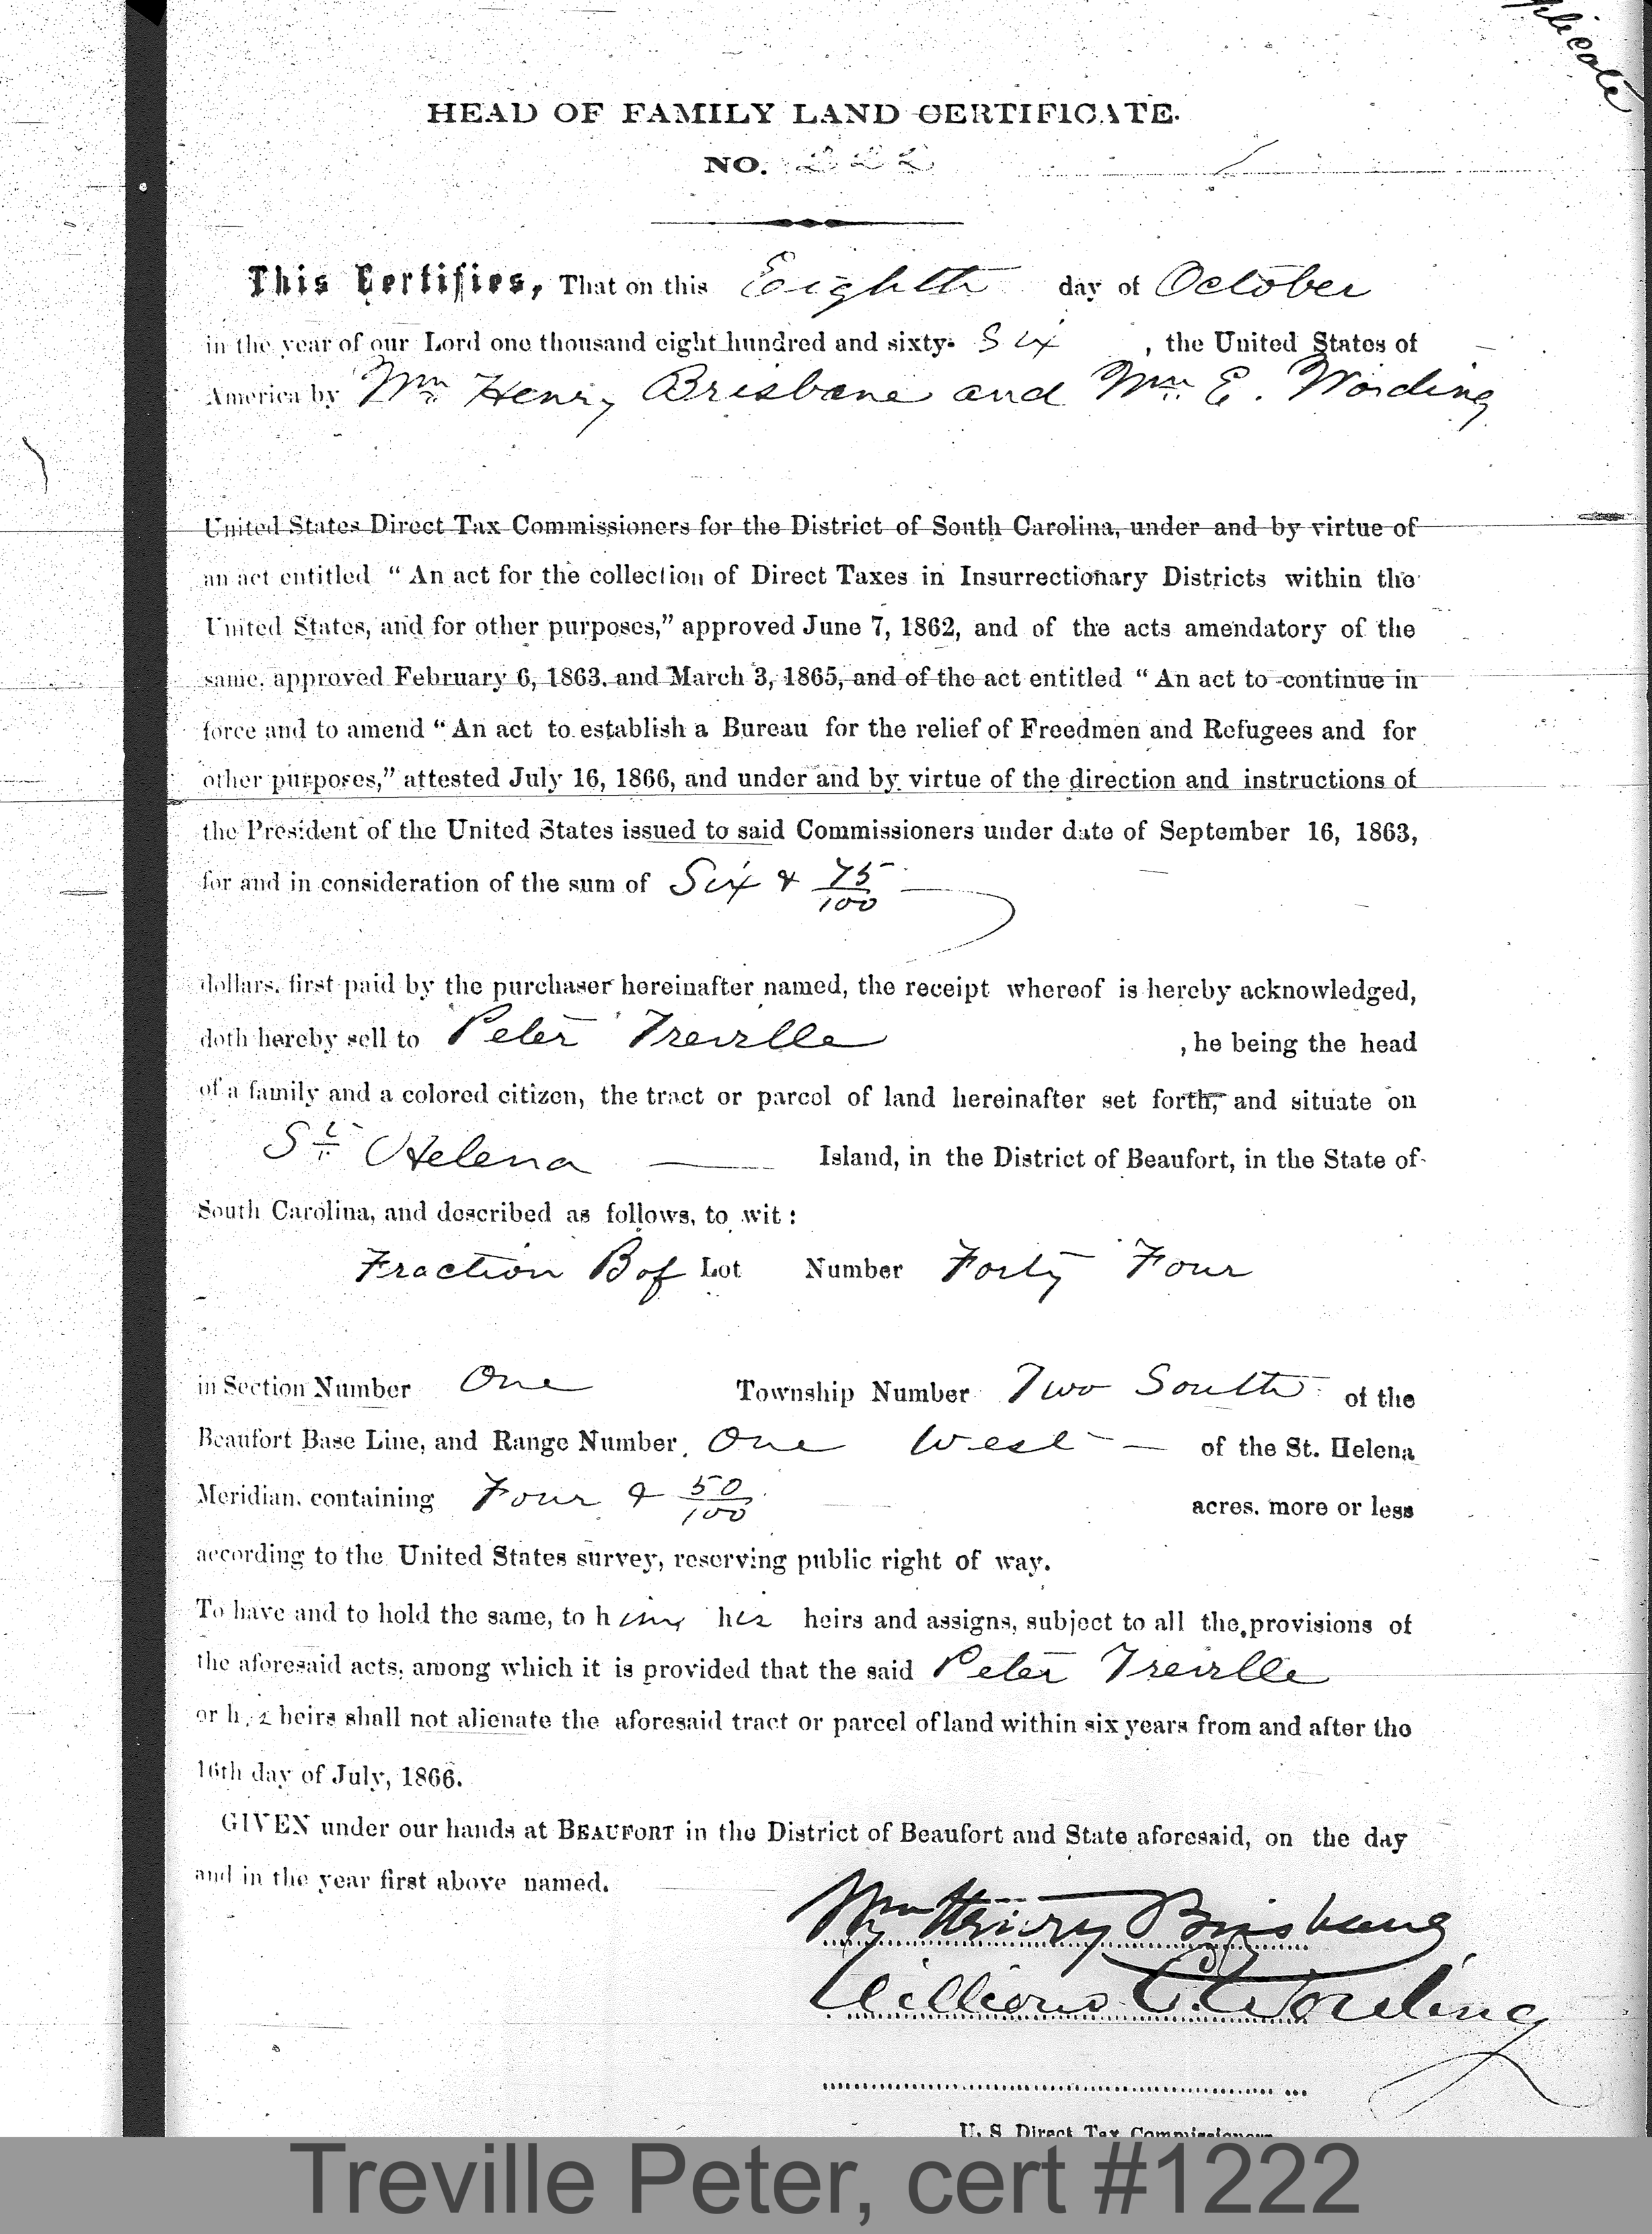 plicate
HEAD OF FAMILY LAND CERTIFICATE.
NO. 222
This Certifies, That on this Eighth day of October
in the year of our Lord one thousand eight hundred and sixty-Six, the United States of
America by Wm Henry Brisbane and Wm. E. Wording
United States Direct Tax Commissioners for the District of South Carolina, under and by virtue of
an act entitled “An act for the collection of Direct Taxes in Insurrectionary Districts within the
United States, and for other purposes,” approved June 7, 1862, and of the acts amendatory of the
same, approved February 6, 1863. and March 3, 1865, and of the act entitled “An act to continue in
force and to amend “An act to establish a Bureau for the relief of Freedmen and Refugees and for
other purposes,” attested July 16, 1866, and under and by virtue of the direction and instructions of
the President of the United States issued to said Commissioners under date of September 16, 1863,
for and in consideration of the sum of Six & 75/100
dollars, first paid by the purchaser hereinafter named, the receipt whereof is hereby acknowledged,
doth hereby sell to Peter Treville, he being the head
of a family and a colored citizen, the tract or parcel of land hereinafter set forth, and situate on
St. Helena Island, in the District of Beaufort, in the State of
South Carolina, and described as follows, to wit:
Fraction B of Lot Number Forty Four
in Section Number One Township Number Two South of the
Beaufort Base Line, and Range Number One West of the St. Helena
Meridian, containing Four & 50/100 acres, more or less
according to the United States survey, reserving public right of way.
To have and to hold the same, to him his heirs and assigns, subject to all the provisions of
the aforesaid acts, among which it is provided that the said Peter Treville
or his heirs shall not alienate the aforesaid tract or parcel of land within six years from and after the
16th day of July, 1866.
GIVEN under our hands at BEAUFORT in the District of Beaufort and State aforesaid, on the day
and in the year first above named.
Wm Henry Brisbane
William E. Wording
U. S. Direct Tax Commissioners
Treville Peter, cert #1222